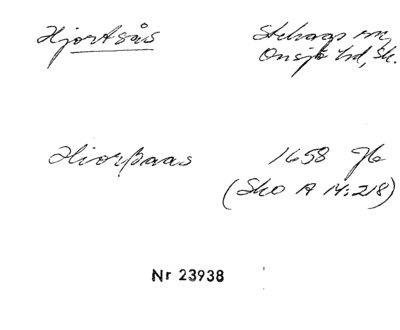 Hjortsås
Stehags sn,
Onsjö hd, Sk.
Hiorßaas
1658 Jb
(Sko A 14:218)
Nr 23938